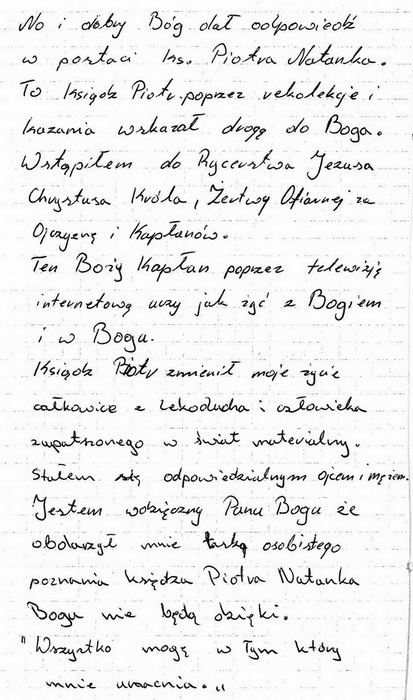 No i dobry Bóg dał odpowiedź
w postaci ks. Piotra Natanka.
To Ksiądz Piotr poprzez rekolekcje i
kazania wskazał drogę do Boga.
Wstąpiłem do Rycerstwa Jezusa
Chrystusa Króla, Żertwy Ofiarnej za
Ojczyznę i Kapłanów.
Ten Boży Kapłan poprzez telewizję
internetową uczy jak żyć z Bogiem
i w Bogu.
Ksiądz Piotr zmienił moje życie
całkowice z lekkoducha i człowieka
zapatrzonego w świat materialny.
Stałem się odpowiedzialnym ojcem i mężem.
Jestem wdzięczny Panu Bogu że
obdarzył mnie łaską osobistego
poznania księdza Piotra Natanka
Bogu nie będą dzięki.
"Wszystko mogę w Tym który
mnie umacnia."